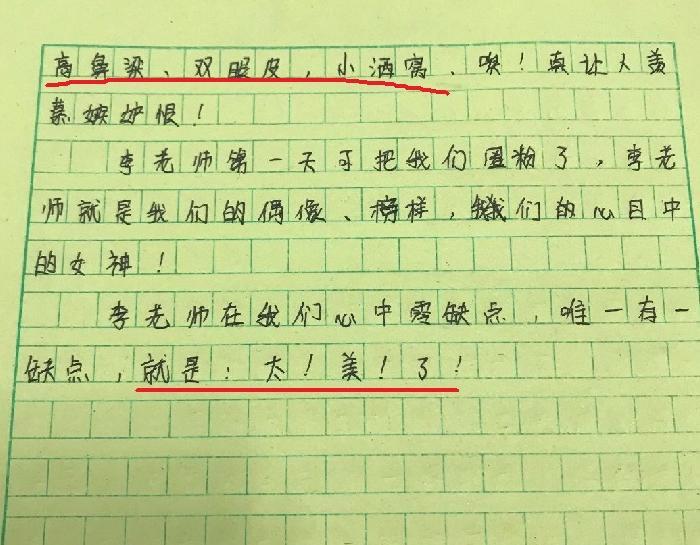 高鼻梁、双眼皮，小酒窝、唉！真让人羡
慕嫉妒恨！
李老师第一天可把我们圈粉了，李老
师就是我们的偶像、榜样，我们的心目中
的女神！
李老师在我们心中零缺点，唯一有一
缺点，就是：太！美！了！